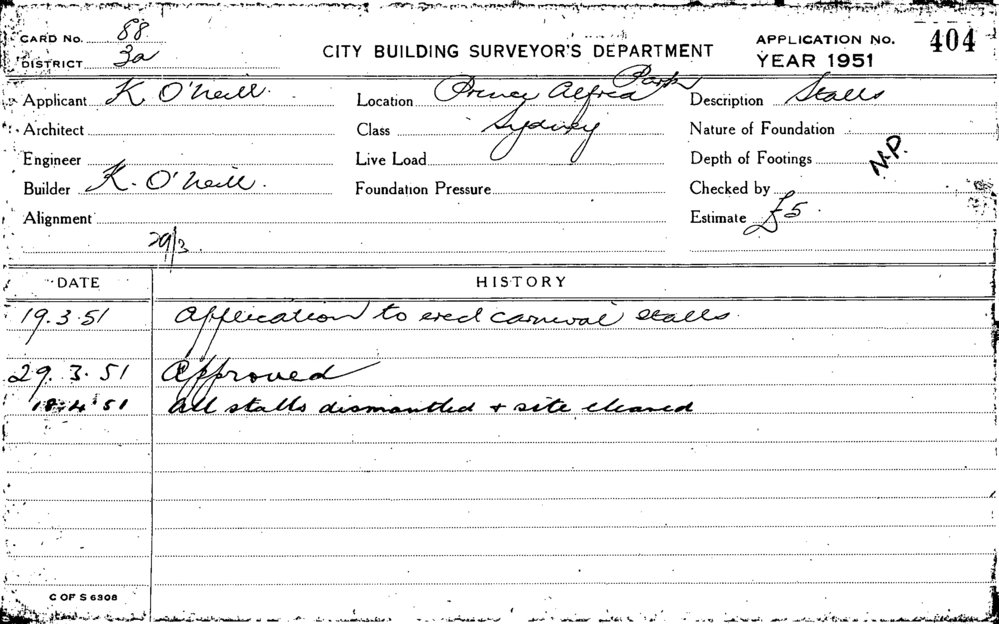 CARD No. 88
DISTRICT 3a
CITY BUILDING SURVEYOR'S DEPARTMENT
APPLICATION No. 404
YEAR 1951
Applicant K O'Neill
Location Prince Alfred Park
Description Stalls
Architect
Class Sydney
Nature of Foundation
Engineer
Live Load
Depth of Footings
N.P.
Builder K. O'Neill.
Foundation Pressure
Checked by
Alignment
Estimate £5.
29/3.
DATE HISTORY
19.3.51 Application to erect carnival stalls.
29.3.51 Approved
18.4.51 All stalls dismantled + site cleared
C OF S 6308